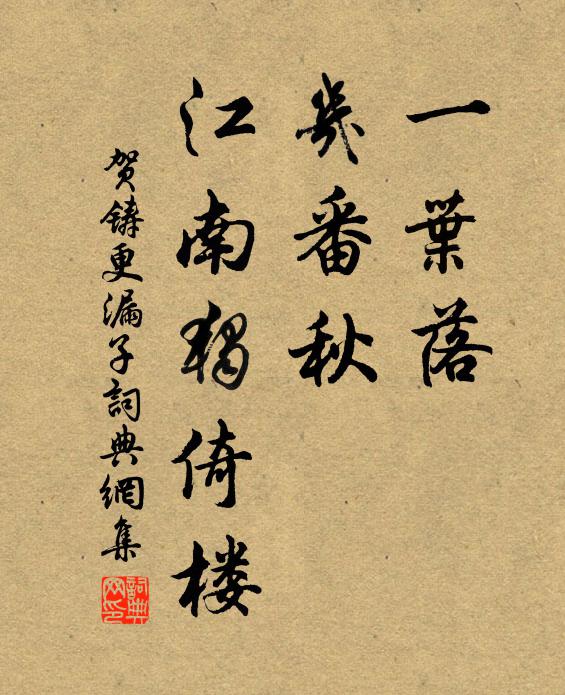 一葉落
幾番秋
江南獨倚楼
贺鑄更漏子詞典網集
詞典
网印